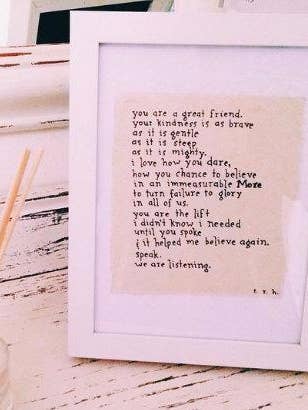 you are a great friend.
your kindness is as brave
as it is gentle
as it is steep
as it is mighty.
i love how you dare,
how you chance to believe
in an immeasurable More
to turn failure to glory
in all of us.
you are the lift
i didn't know i needed
until you spoke
& it helped me believe again.
speak.
we are listening.
t. v. h.